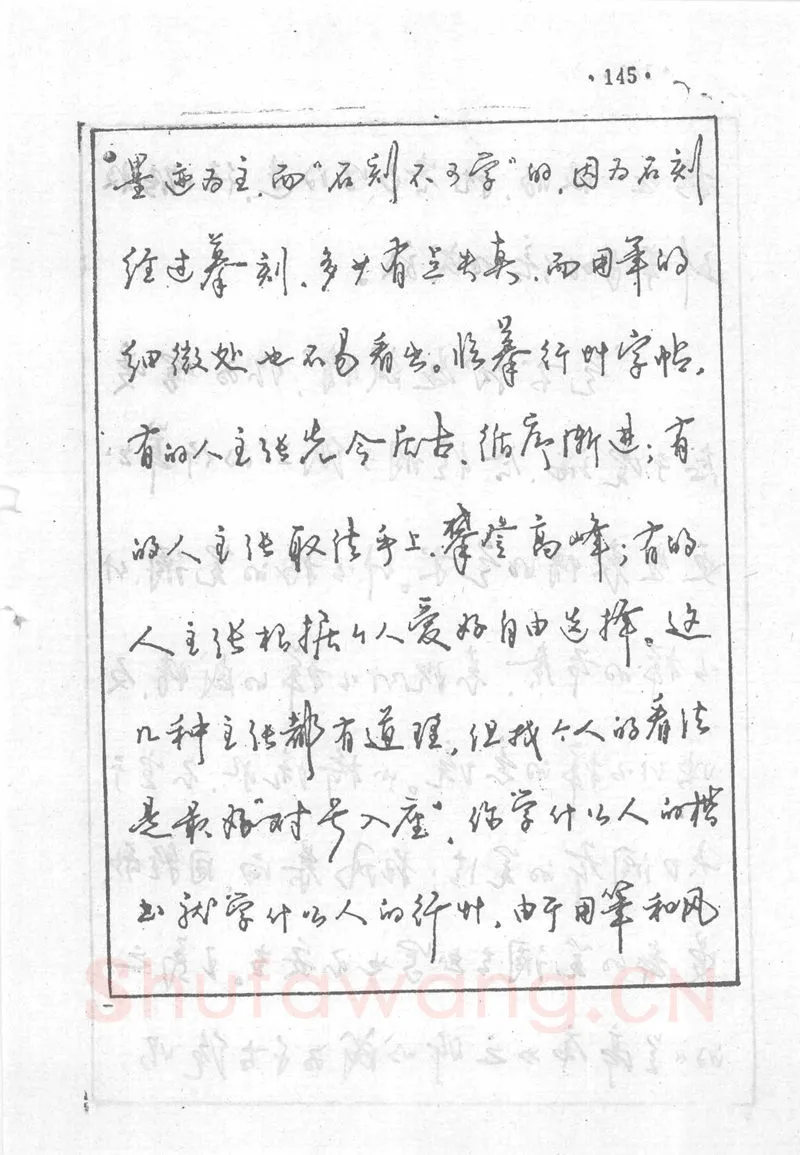 ·145·
墨迹为主，而“石刻不可学”的，因为石刻
经过摹刻，多少有点失真，而用笔的
细微处也不易看出。临摹行草字帖，
有的人主张先今后古，循序渐进；有
的人主张取法乎上，攀登高峰；有的
人主张根据个人爱好自由选择。这
几种主张都有道理，但我个人的看法
是最好“对号入座”，你学什么人的楷
书就学什么人的行草，由于用笔和风
Shufawang.CN